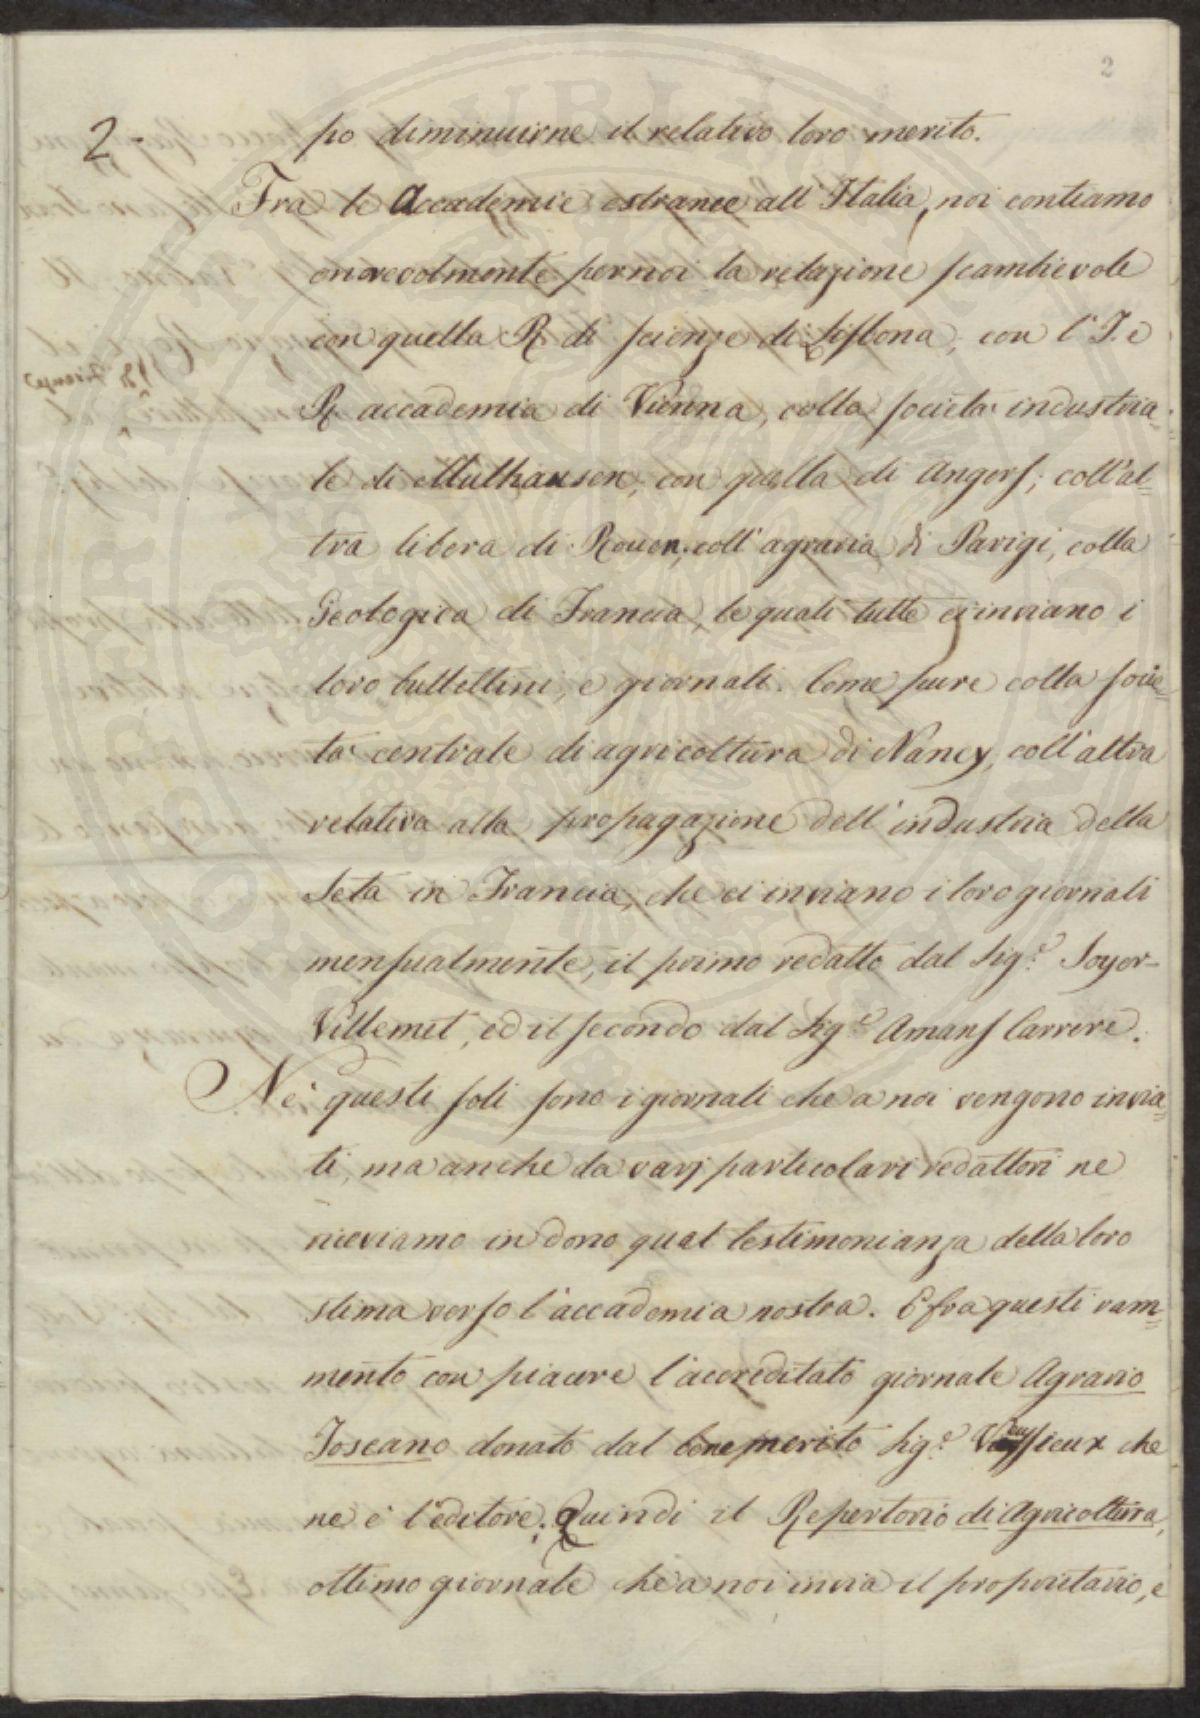 2
2-
po diminuirne il relativo loro merito.
Fra le Accademie estranee all'Italia, noi contiamo
onorevolmente per noi la relazione scambievole
con quella R. di scienze di Lisbona, con l'I. e
R. accademia di Vienna, colla società industria=
le di Mulhausen; con quella di Angers; coll'al=
tra libera di Rouen; coll'agraria di Parigi, colla
Geologica di Francia, le quali tutte ci inviano i
loro bullettini, e giornali. Come pure colla socie=
tà centrale di agricoltura di Nancy, coll'altra
relativa alla propagazione dell'industria della
Seta in Francia, che ci inviano i loro giornali
mensualmente, il primo redatto dal Sig.e Soyer-
Villemet, ed il secondo dal Sig.e Amans Carrere.
Nè questi soli sono i giornali che a noi vengono invia=
ti, ma anche da varj particolari redattori ne
riceviamo in dono qual testimonianza della loro
stima verso l'accademia nostra. E fra questi ram=
mento con piacere l'accreditato giornale Agrario
Toscano donato dal benemerito Sig.e Vieusseux che
ne è l'editore; Quindi il Repertorio di Agricoltura,
ottimo giornale che a noi invia il proprietario, e